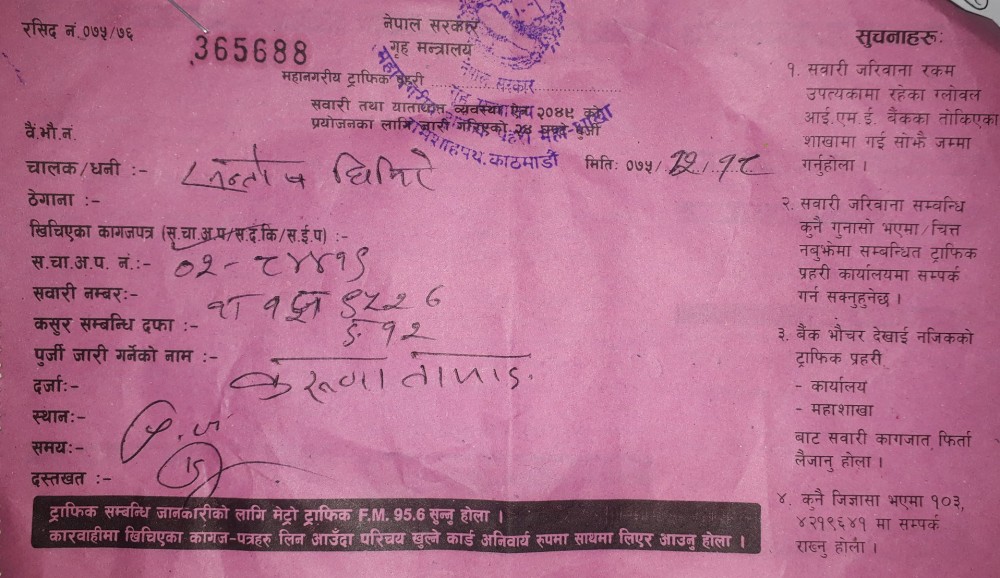 रसिद नं.०७५/७६
365688
नेपाल सरकार
गृह मन्त्रालय
महानगरीय ट्राफिक प्रहरी
सवारी तथा यातायात व्यवस्था ऐन २०४९ को
प्रयोजनका लागि जारी गरिएको २४ घण्टे पुर्जी
नेपाल सरकार
रामशाहपथ, काठमाडौं
वै.भौ.नं.
मिति: ०७५/12/१८
चालक/धनी :- सन्तोष घिमिरे
ठेगाना :-
खिचिएका कागजपत्र (स.चा.अ.प/स.द.कि/स.ई.प) :-
स.चा.अ.प. नं.:- ०२-८४४१९
सवारी नम्बर:- बा १
कसुर सम्बन्धि दफा :- ङ १२
पुर्जी जारी गर्नेको नाम :-
दर्जा:-
स्थान:-
समय:-
दस्तखत :-
ट्राफिक सम्बन्धि जानकारीको लागि मेट्रो ट्राफिक F.M. 95.6 सुन्नु होला ।
कारवाहीमा खिचिएका कागज-पत्रहरु लिन आउँदा परिचय खुल्ने कार्ड अनिवार्य रुपमा साथमा लिएर आउनु होला ।
सुचनाहरु:
१. सवारी जरिवाना रकम
उपत्यकामा रहेका ग्लोवल
आई.एम.ई. बैंकका तोकिएका
शाखामा गई सोझै जम्मा
गर्नुहोला ।
२. सवारी जरिवाना सम्बन्धि
कुनै गुनासो भएमा/चित्त
नबुझेमा सम्बन्धित ट्राफिक
प्रहरी कार्यालयमा सम्पर्क
गर्न सक्नुहुनेछ ।
३. बैंक भौचर देखाई नजिकको
ट्राफिक प्रहरी
- कार्यालय
- महाशाखा
बाट सवारी कागजात फिर्ता
लैजानु होला ।
४. कुनै जिज्ञासा भएमा १०३,
४२१९६४१ मा सम्पर्क
राख्नु होला ।